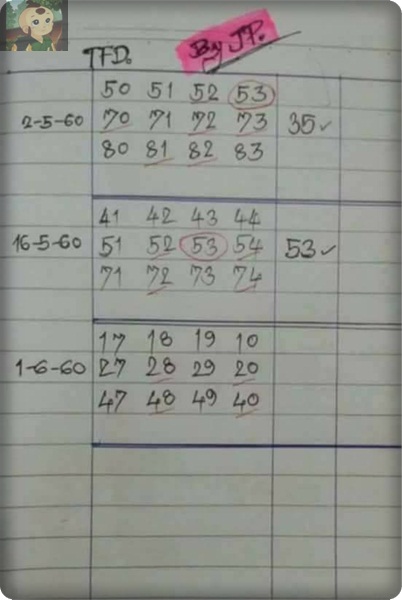 By JP.
TFD.
50 51 52 53
2-5-60 70 71 72 73 35✓
80 81 82 83
41 42 43 44
16-5-60 51 52 53 54 53✓
71 72 73 74
17 18 19 10
1-6-60 27 28 29 20
47 48 49 40